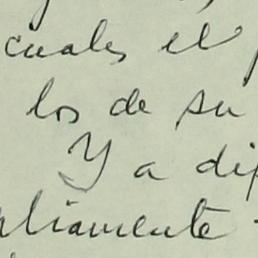 cuales el
los de su
Y a di
liamente